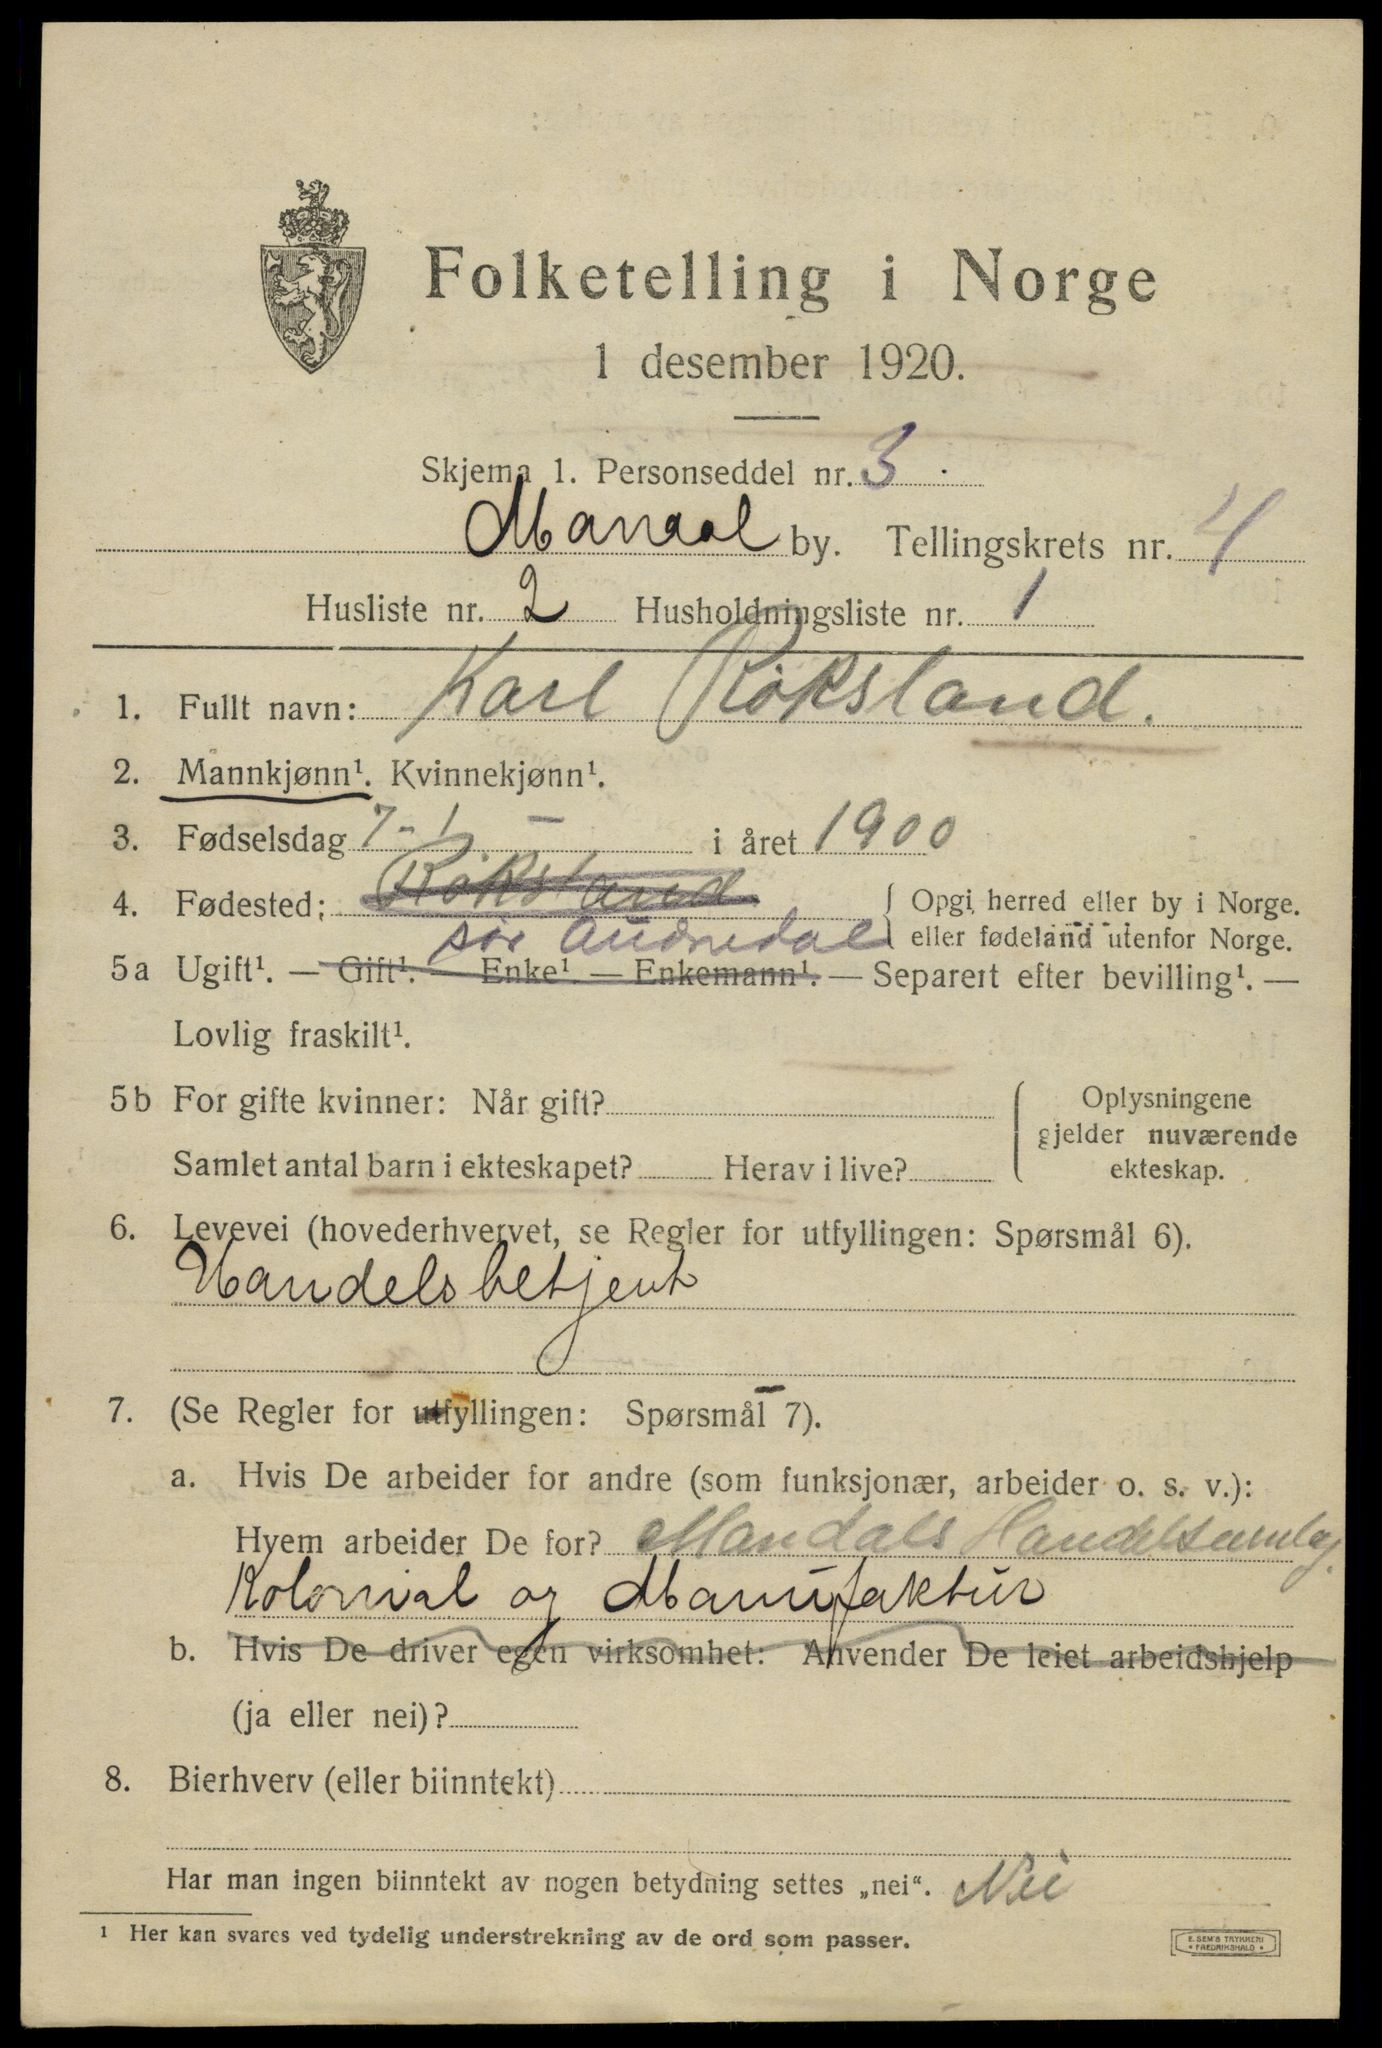 Folketelling i Norge
1 desember 1920.
Skjema 1. Personseddel nr. 3.
Mandal by. Tellingskrets nr. 4
Husliste nr. 2 Husholdningsliste nr. 1
1. Fullt navn: Karl Röksland.
2. Mannkjønn¹. Kvinnekjønn¹.
3. Fødselsdag 7-1 – i året 1900
4. Fødested: Röksland { Opgi herred eller by i Norge.
sör Audnedal eller fødeland utenfor Norge.
5a Ugift¹. — Gift¹. — Enke¹. — Enkemann¹. — Separert efter bevilling¹. —
Lovlig fraskilt¹.
5b For gifte kvinner: Når gift? Oplysningene
gjelder nuværende
Samlet antal barn i ekteskapet? Herav i live? ekteskap.
6. Levevei (hovederhvervet, se Regler for utfyllingen: Spørsmål 6).
Handelsbetjent
7. (Se Regler for utfyllingen: Spørsmål 7).
a. Hvis De arbeider for andre (som funksjonær, arbeider o. s. v.):
Hvem arbeider De for? Mandals Handelsamlag.
Kolonial og Manufaktur
b. Hvis De driver egen virksomhet: Anvender De leiet arbeidshjelp
(ja eller nei)?
8. Bierhverv (eller biinntekt)
Har man ingen biinntekt av nogen betydning settes „nei“. Nei
¹ Her kan svares ved tydelig understrekning av de ord som passer.
E. SEM'S TRYKKERI
• FREDRIKSHALD •